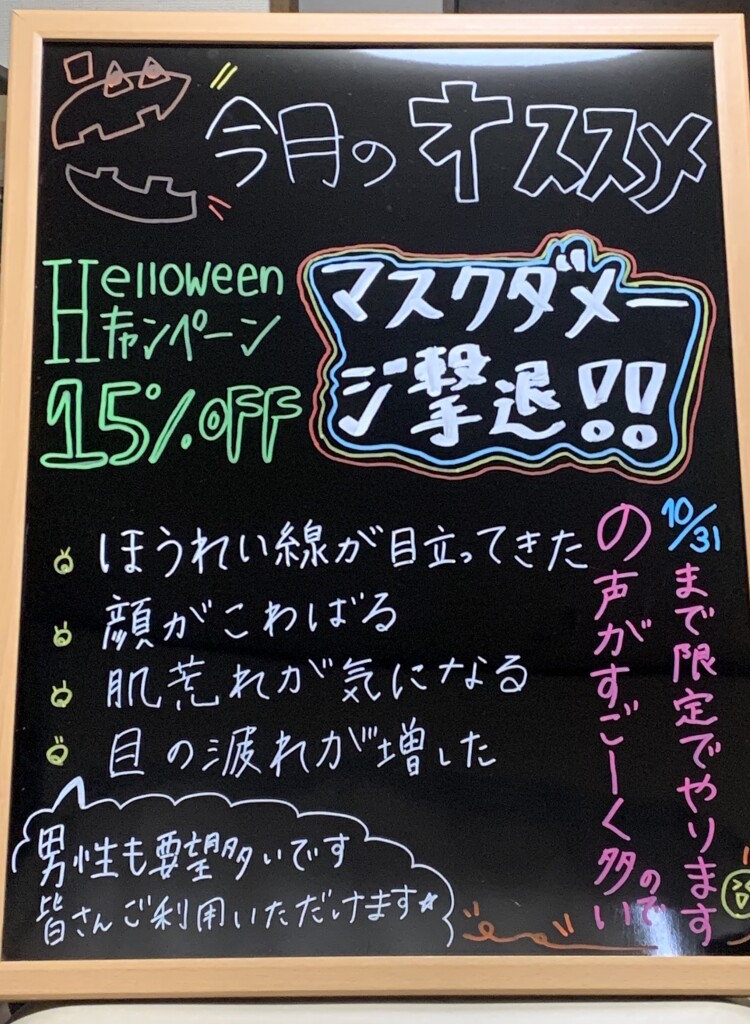 今月のオススメ
Helloween
キャンペーン
15%OFF
マスクダメー
ジ撃退!!
ほうれい線が目立ってきた
顔がこわばる
肌荒れが気になる
目の疲れが増した
の声がすごーく多い
ので
10/31
まで限定でやります
男性も要望多いです
皆さんご利用いただけます☆